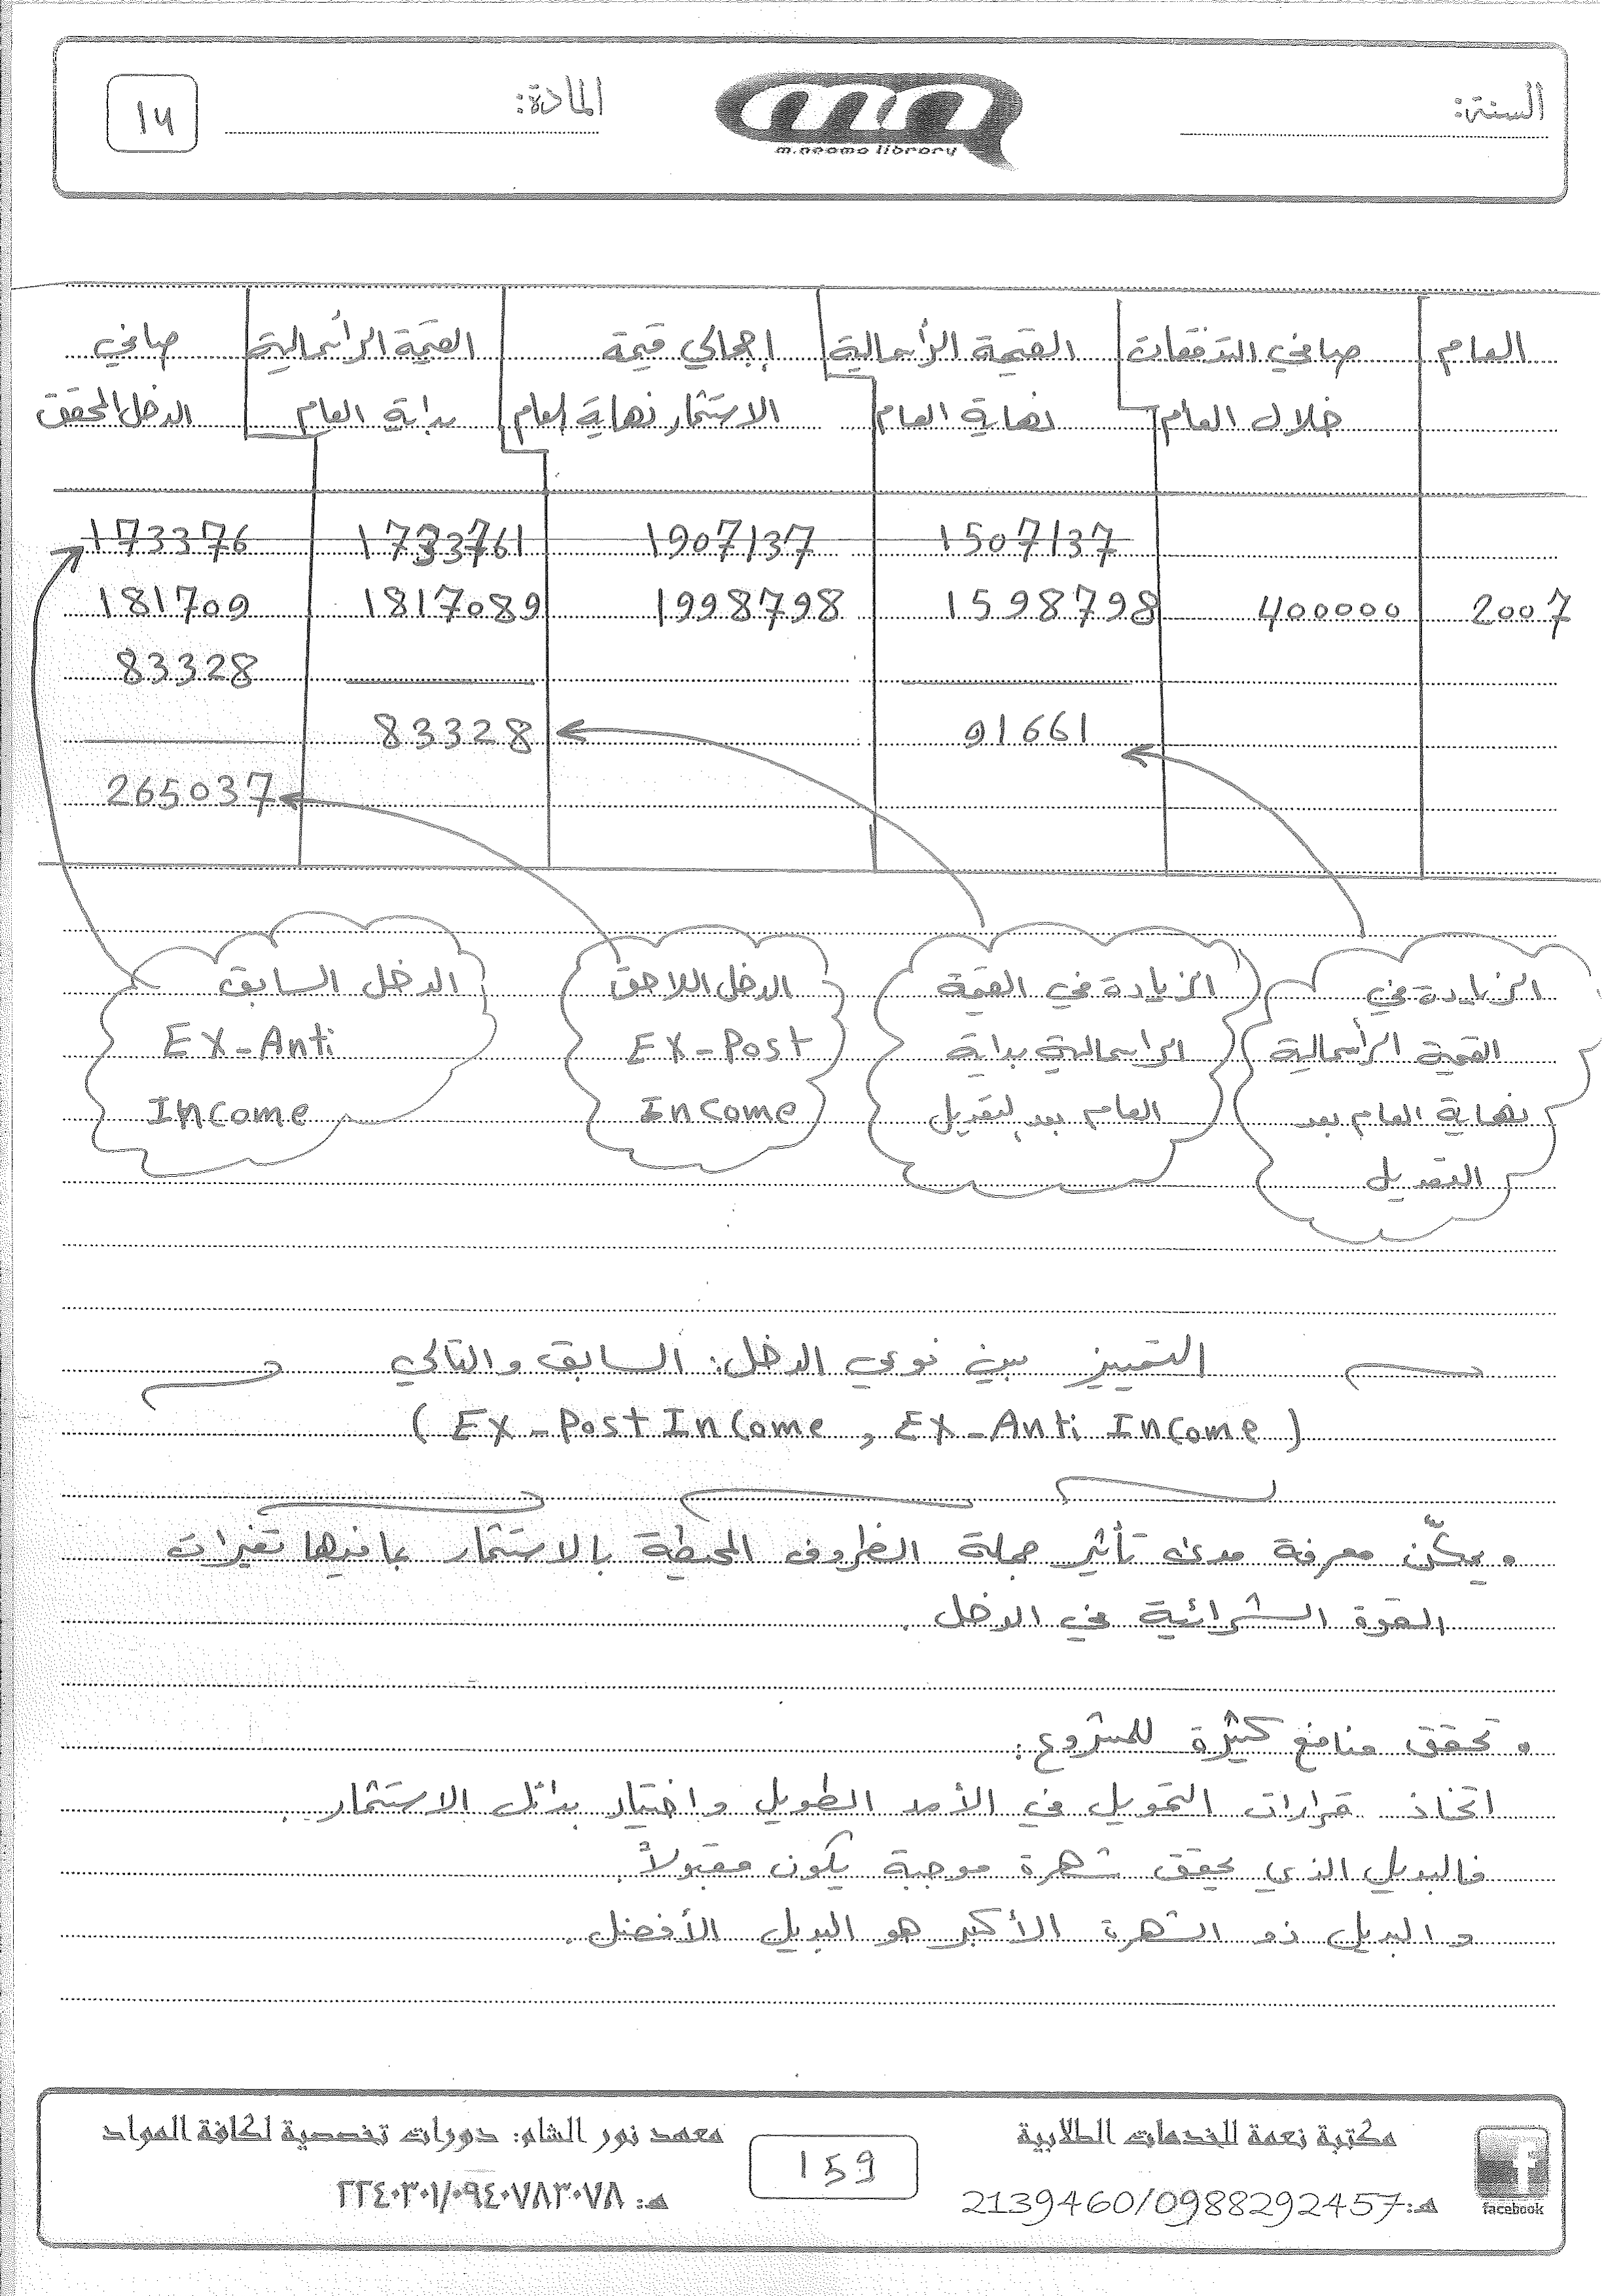 السنة:
m.neama library
المادة:
14
العام
صافي التدفقات
خلال العام
القيمة الرأسمالية
نهاية العام
إجمالي قيمة
الاستثمار نهاية العام
القيمة الرأسمالية
بداية العام
صافي
الدخل المحقق
1507137 1907137 1733761 173376
2007 400000 1598798 1998798 1817089 181709
83328
91661 83328
265037
الزيادة في
القيمة الرأسمالية
نهاية العام بعد
التعديل
الزيادة في القيمة
الراسمالية بداية
العام بعد التعديل
الدخل اللاحق
EX-Post
Income
الدخل السابق
EX-Anti
Income
التمييز بين نوعي الدخل: السابق والتالي
(EX-Post Income , EX-Anti Income)
• يمكّن معرفة مدى تأثير جملة الظروف المحيطة بالاستثمار بما فيها تغيرات
القوة الشرائية في الدخل.
• تحقق منافع كثيرة للمشروع:
اتخاذ قرارات التمويل في الأمد الطويل واختيار بدائل الاستثمار.
فالبديل الذي يحقق شهرة موجبة يكون مقبولاً.
والبديل ذو الشهرة الأكبر هو البديل الأفضل.
facebook
مكتبة نعمة للخدمات الطلابية
هـ: 2139460/0988292457
159
معهد نور الشام: دورات تخصصية لكافة المواد
هـ: ٢٢٤٠٣٠١/٠٩٤٠٧٨٣٠٧٨